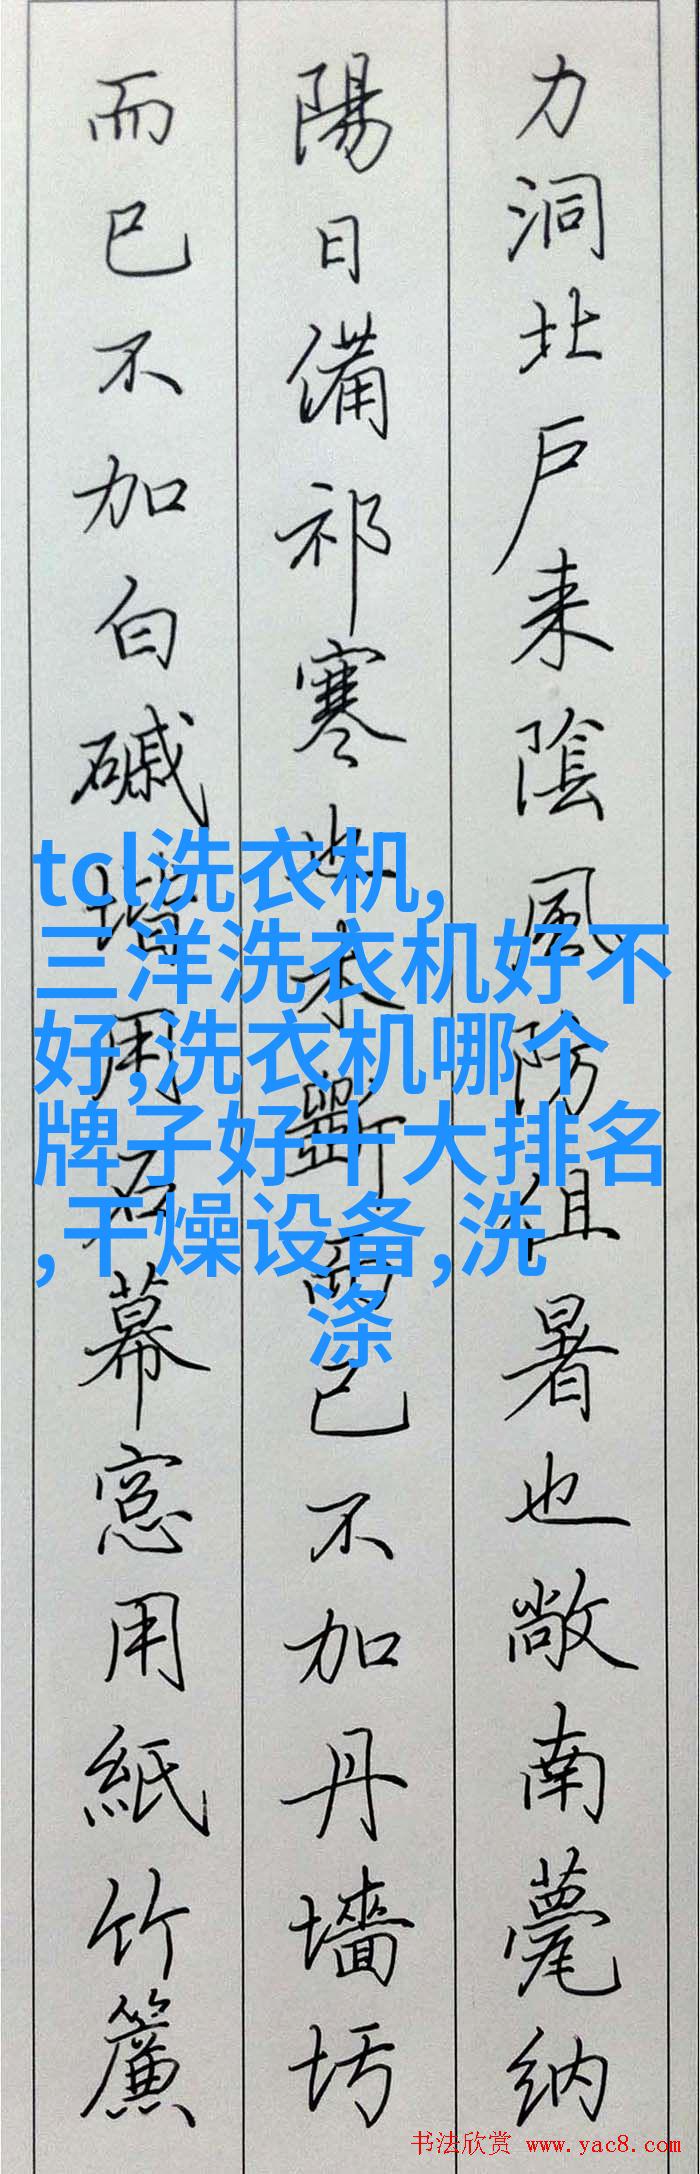 力洞北户来陰風防徂暑也敞南甍纳
陽日備祁寒也木斷而已不加丹墻圬
而已不加白磩堦用石幕窓用紙竹簾
tcl洗衣机,
三洋洗衣机好不
好,洗衣机哪个
牌子好十大排名
,干燥设备,洗
涤
书法欣赏 www.yac8.com